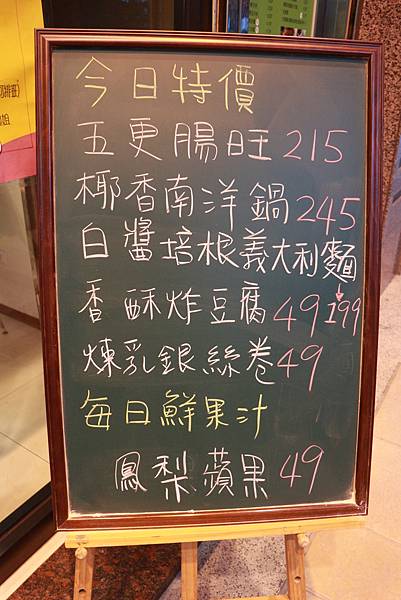 今日特價
五更腸旺 215
椰香南洋鍋 245
白醬培根義大利麵 199
香酥炸豆腐 49
煉乳銀絲卷 49
每日鮮果汁
鳳梨蘋果 49